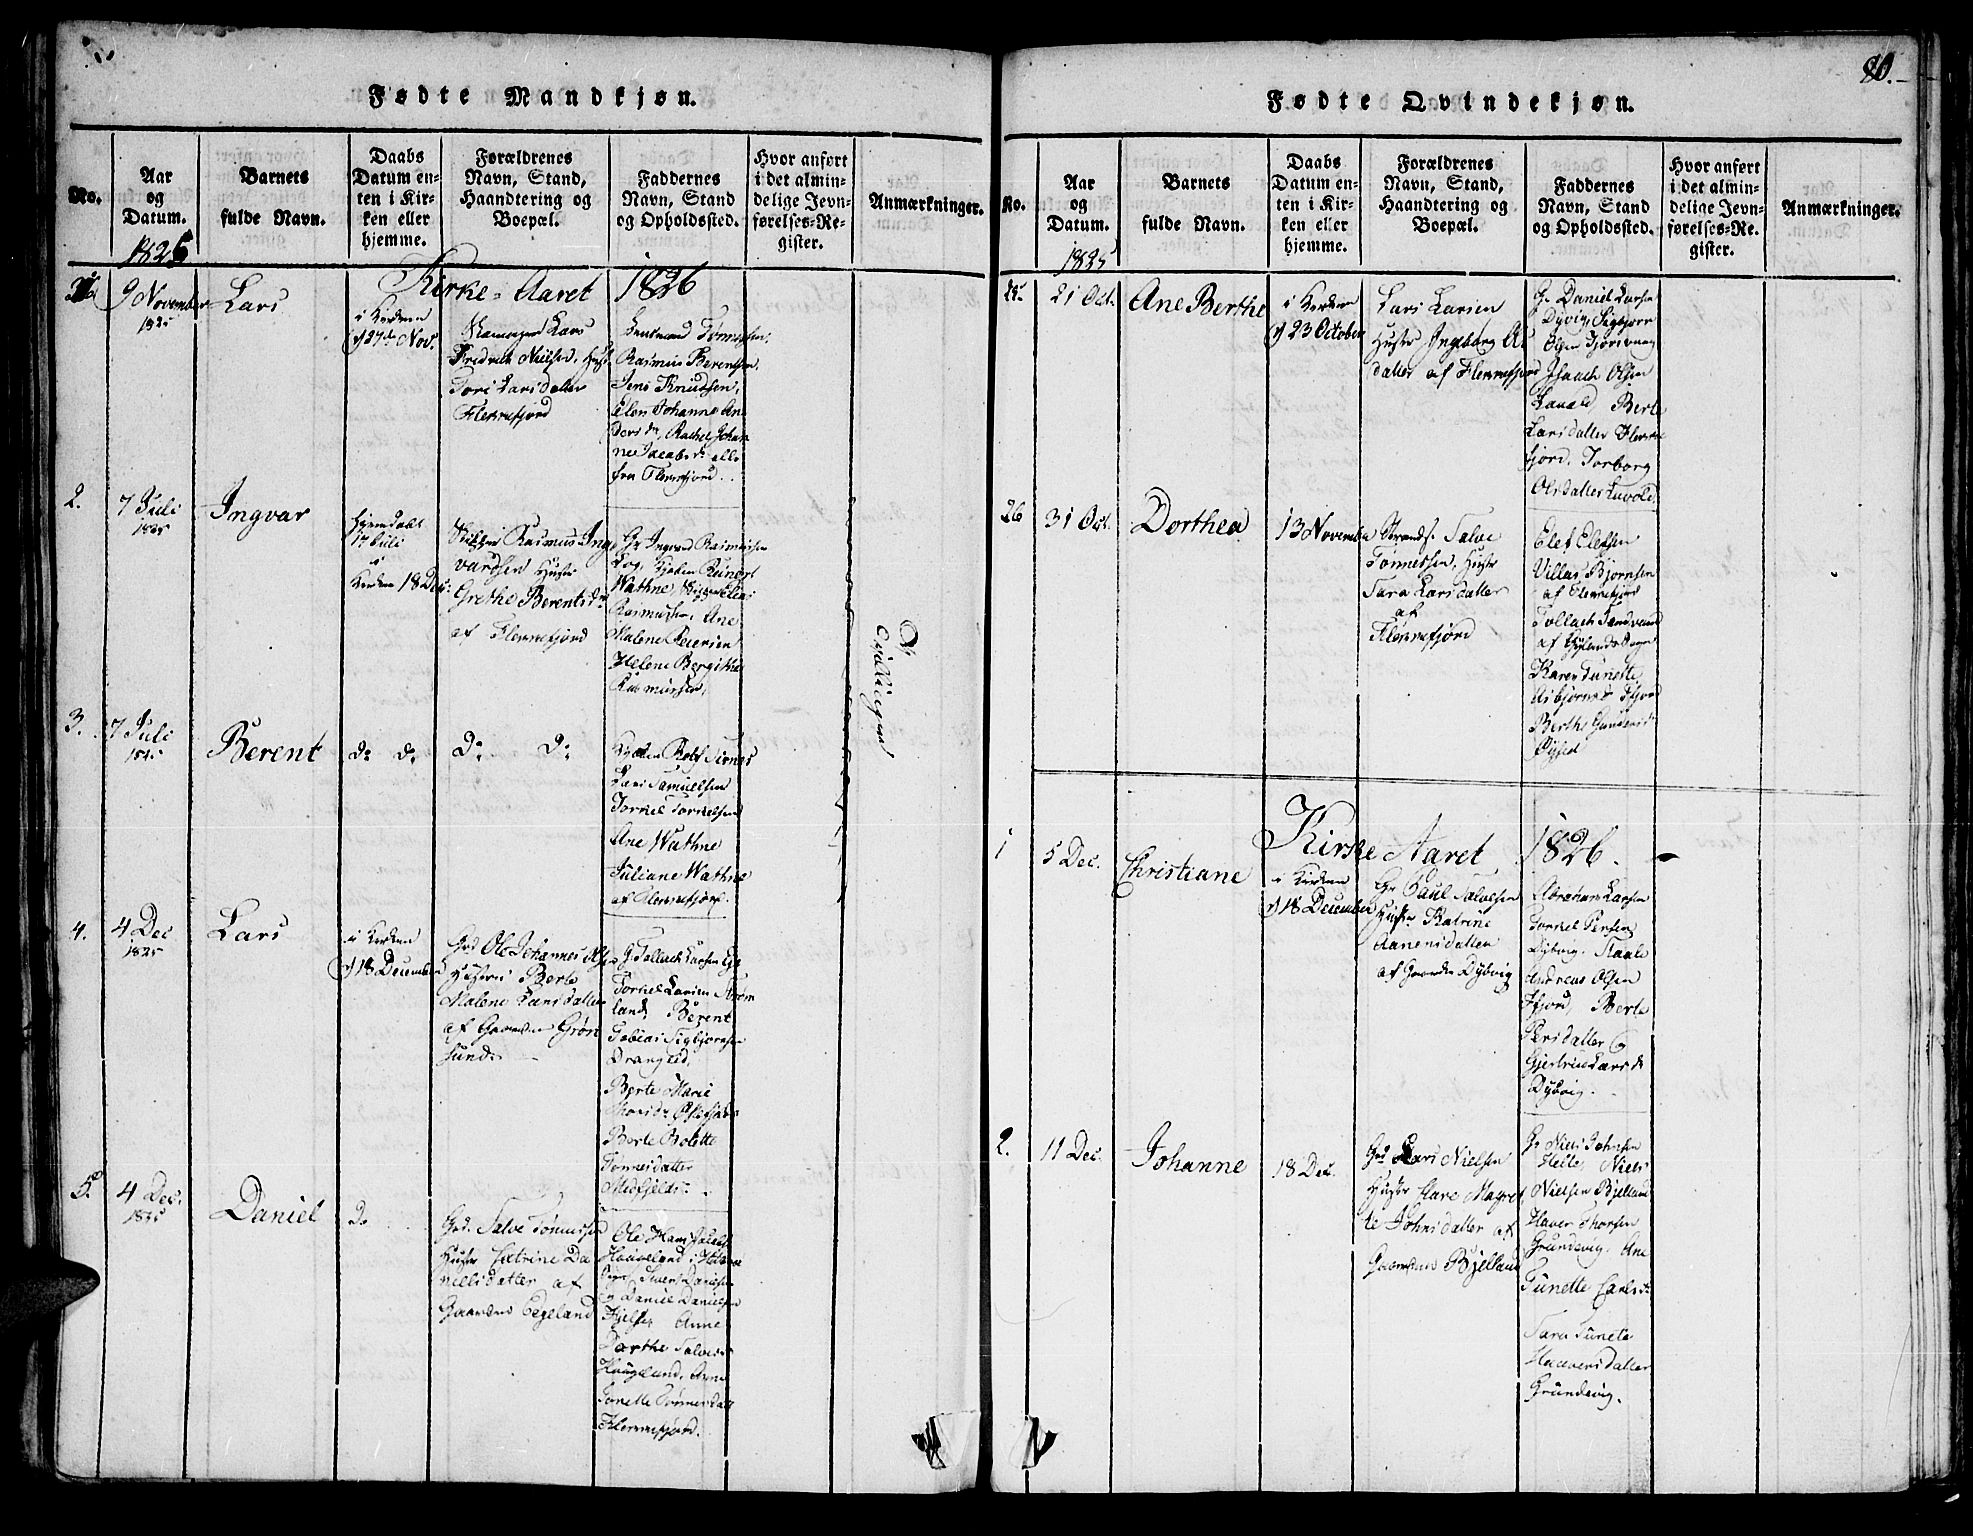 Fødte Mandkjøn.
No.
Aar
og
Datum.
1825
Barnets
fulde Navn.
Daabs
Datum en-
ten i Kir-
ken eller
hjemme.
Forældrenes
Navn, Stand,
Haandtering og
Boepæl.
Faddernes
Navn, Stand
og Opholdssted.
Hvor anført
i det almin-
delige Jevn-
førelses-Re-
gister.
Anmærkninger.
Kirke-Aaret 1826
9 November
1825
Lars
i Kirken
27de Nov.
Lars
Fredrik Nielsen, Hustr
Tori Larsdatter
Flekkefjord
Tønnessen,
Rasmus Berentsen,
Jens Knudsen,
Elen Johanne An
dersdr, Rachel Johan
ne Jacobsdr alle
fra Flekkefjord
2.
7 Juli
1825
Ingvar
hjemdøbt
17 Juli
i
Kirken 18 Dec:
Skipper Rasmus Ing
vardsen Hustr
Grethe Berentsdr
af Flekkefjord
Gr Ingvard Rasmussen
Log, Reinert
Wathne,
Rasmusdr, Ane
Malene Peersen
Helene Bergitha
Rasmusdr,
Tvillinger
3.
7 Juli
1825
Berent
do do
Do Do
Rolf Sirnes
Lars Samuelsen
Torkel Torkelsen
Ane Wathne
Juliane Wathne
af Flekkefjord.
4.
4 Dec
1825
Lars
i Kirken
18 December
Grd Ole Johannes Olsen
Hustr Berte
Malene Larsdatter
af Gaarden Grøn
sund
G. Tollach Larsen Ege
Torkel Larsen Strøm
land, Berent
Tobias Sigbjørnsen
Drangeid,
Berte Marie
Berte Bolette
Tønnesdatter
Midfjeld
5.
4 Dec.
1825
Daniel
Do
Grd. Salve Tønnessen
Hustr Catrine Da
nielsdatter af
Gaarden Egeland
Ole Hans
Haaveland i
Sogn, Sivert Danielsen
og Daniel Danielsen
Anne
Dorthe Salvesdr
Haugeland, Anne
Tonette Tønnesdatt
Flekkefjord.
Fødte Qvindekjøn.
No.
Aar
og
Datum.
1825
Barnets
fulde Navn.
Daabs
Datum en-
ten i Kir-
ken eller
hjemme.
Forældrenes
Navn, Stand,
Haandtering og
Boepæl.
Faddernes
Navn, Stand
og Opholdssted.
Hvor anført
i det almin-
delige Jevn-
førelses-Re-
gister.
Anmærkninger.
25.
21 Oct.
Ane Berthe
i Kirken
23 October
Lars Larsen
Hustr Ingeborg Ols
datter af Flekkefjord
Gr Daniel Larsen
Dyvig, Sigbjørn
Olsen
Isaach Olsen
Lavold, Berte
Larsdatter Flekke
fjord, Torborg
Olsdatter Lavold
26
31 Oct.
Dorthea
13 November
Strands. Salve
Tønnessen, Hustr
Sara Larsdatter
af
Flekkefjord
Elef Elefsen
Villas Bjørnsen
af Flekkefjord
Tollach
af Gylands Sogn
Karen Tunette
Asbjørnsdr Fjord
Berthe Gundersdr
Øysled
Kirke Aaret 1826.
1
5 Dec.
Christiane
i Kirken
18 December
Gr Paul Salvesen
Hustr Katrine
Aanensdatter
af Gaarden Dybvig
Abraham Larsen
Tarkel Persen
Dybvig, Staale
Andreas Olsen
Fjord, Berte
Persdatter og
Gjertrue Larsdr
Dybvig.
2.
11 Dec.
Johanne
18 Dec.
Grd Lars Nielsen
Hustr Clare Magret
te Johnsdatter af
Gaarden Bjelland
Gr Niels Johnsen
Niels
Nielsen Bjelland
Haver Thorsen
Grundevig, Ane
Tunette Carlsdr
Sara Tunete
Haaversdatter
Grundevig.